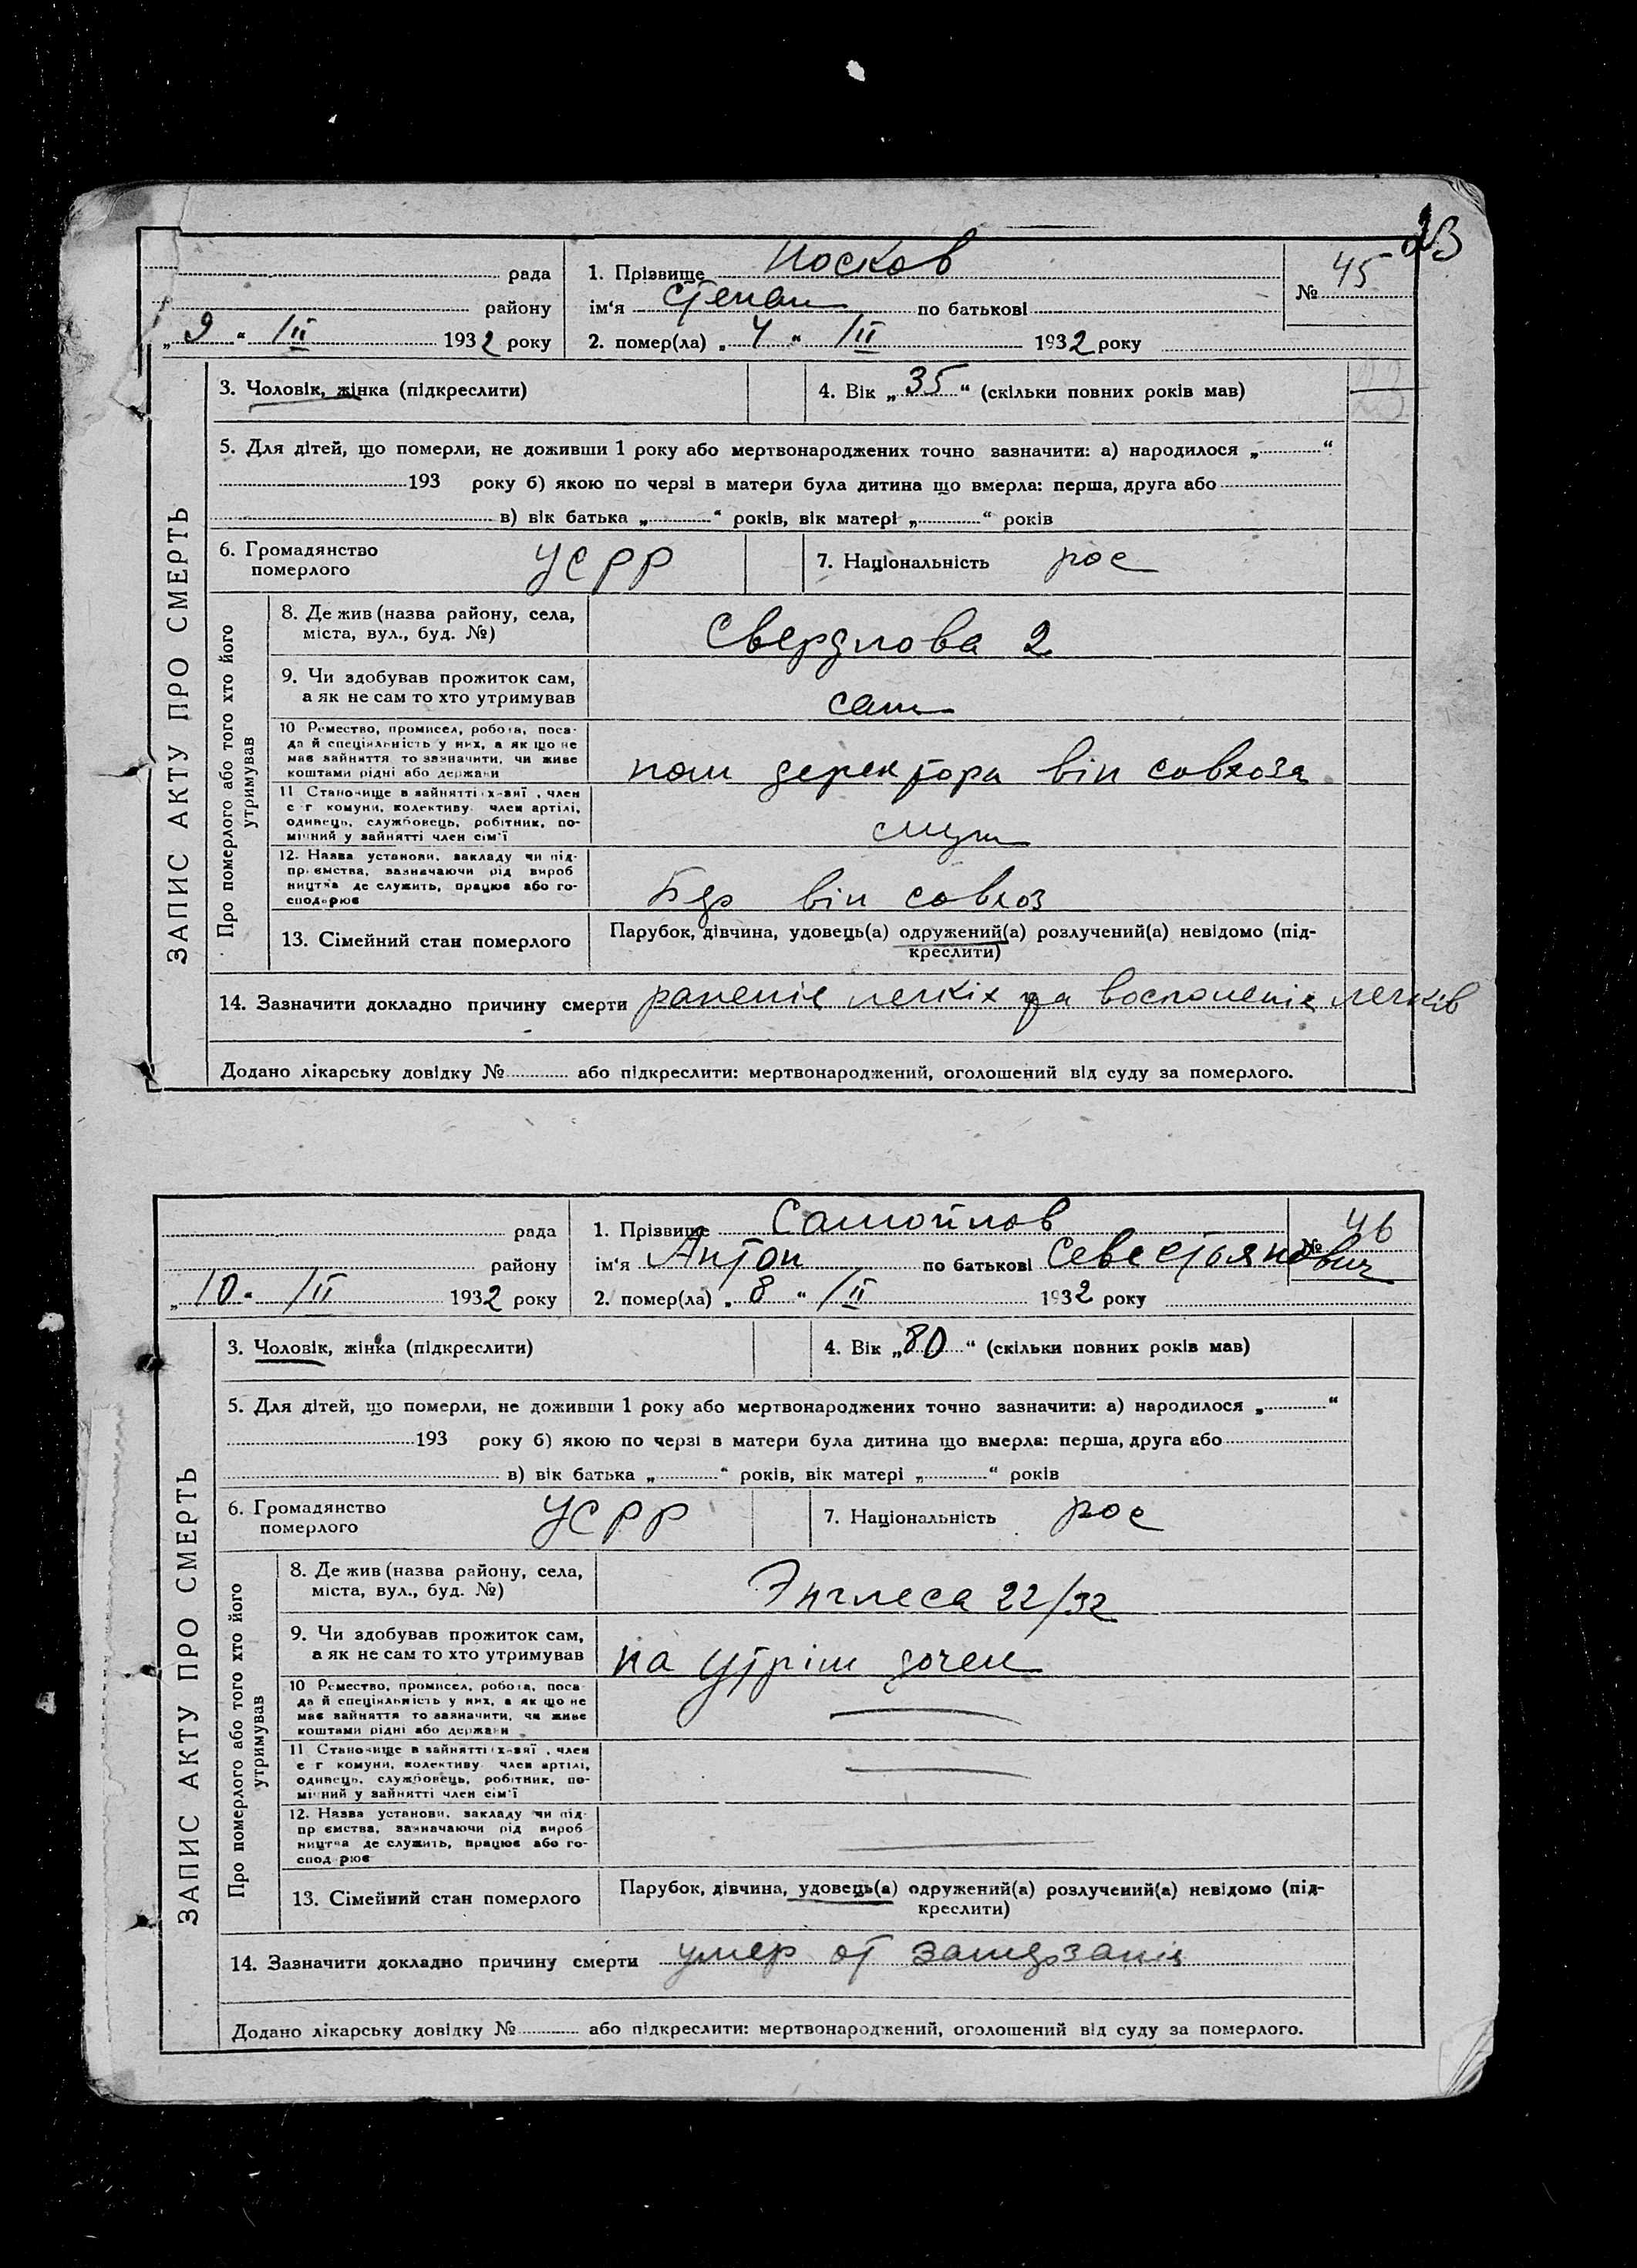 23
рада
1. Прізвище Носков
№ 45
району
ім'я Степан по батькові
„9“ /II 1932 року
2. помер(ла) „4“ /II 1932 року
ЗАПИС АКТУ ПРО СМЕРТЬ
3. Чоловік, жінка (підкреслити)
4. Вік „35“ (скільки повних років мав)
5. Для дітей, що померли, не доживши 1 року або мертвонароджених точно зазначити: а) народилося „ “
193 року б) якою по черзі в матери була дитина що вмерла: перша, друга або
в) вік батька „ “ років, вік матері „ “ років
6. Громадянство
померлого
УСРР
7. Національність рос
Про померлого або того хто його
утримував
8. Де жив (назва району, села,
міста, вул., буд. №)
Свердлова 2
9. Чи здобував прожиток сам,
а як не сам то хто утримував
сам
10 Ремество, промисел, робота, поса-
да й спеціяльність у них, а як що не
має зайняття то зазначити, чи живе
коштами рідні або держави
пом деректора він совхоза
11 Становище в зайнятті х-вні, член
с г комуни, колективу член артілі,
одинець, службовець, робітник, по-
мічний у зайнятті член сім'ї
служ
12. Назва установи, закладу чи під-
приємства, зазначаючи рід вироб
ництва де служить, працює або го-
сподарює
він совхоз
13. Сімейний стан померлого
Парубок, дівчина, удовець(а) одружений(а) розлучений(а) невідомо (під-
креслити)
14. Зазначити докладно причину смерти раненіе легкіх та воспоменіе легків
Додано лікарську довідку № або підкреслити: мертвонароджений, оголошений від суду за померлого.
рада
1. Прізвище Самойлов
№ 46
району
ім'я Антон по батькові Севестьянович
„10“ /II 1932 року
2. помер(ла) „8“ /II 1932 року
ЗАПИС АКТУ ПРО СМЕРТЬ
3. Чоловік, жінка (підкреслити)
4. Вік „80“ (скільки повних років мав)
5. Для дітей, що померли, не доживши 1 року або мертвонароджених точно зазначити: а) народилося „ “
193 року б) якою по черзі в матери була дитина що вмерла: перша, друга або
в) вік батька „ “ років, вік матері „ “ років
6. Громадянство
померлого
УСРР
7. Національність рос
Про померлого або того хто його
утримував
8. Де жив (назва району, села,
міста, вул., буд. №)
Энглеса 22/32
9. Чи здобував прожиток сам,
а як не сам то хто утримував
на утрім дочек
10 Ремество, промисел, робота, поса
да й спеціяльність у них, а як що не
має зайняття то зазначити, чи живе
коштами рідні або держави
11 Становище в зайнятті х-вні, член
с г комуни, колективу член артілі,
одинець, службовець, робітник, по-
мічний у зайнятті член сім'ї
12. Назва установи, закладу чи під-
приємства, зазначаючи рід вироб
ництва де служить, працює або го-
сподарює
13. Сімейний стан померлого
Парубок, дівчина, удовець(а) одружений(а) розлучений(а) невідомо (під-
креслити)
14. Зазначити докладно причину смерти умер от
Додано лікарську довідку № або підкреслити: мертвонароджений, оголошений від суду за померлого.